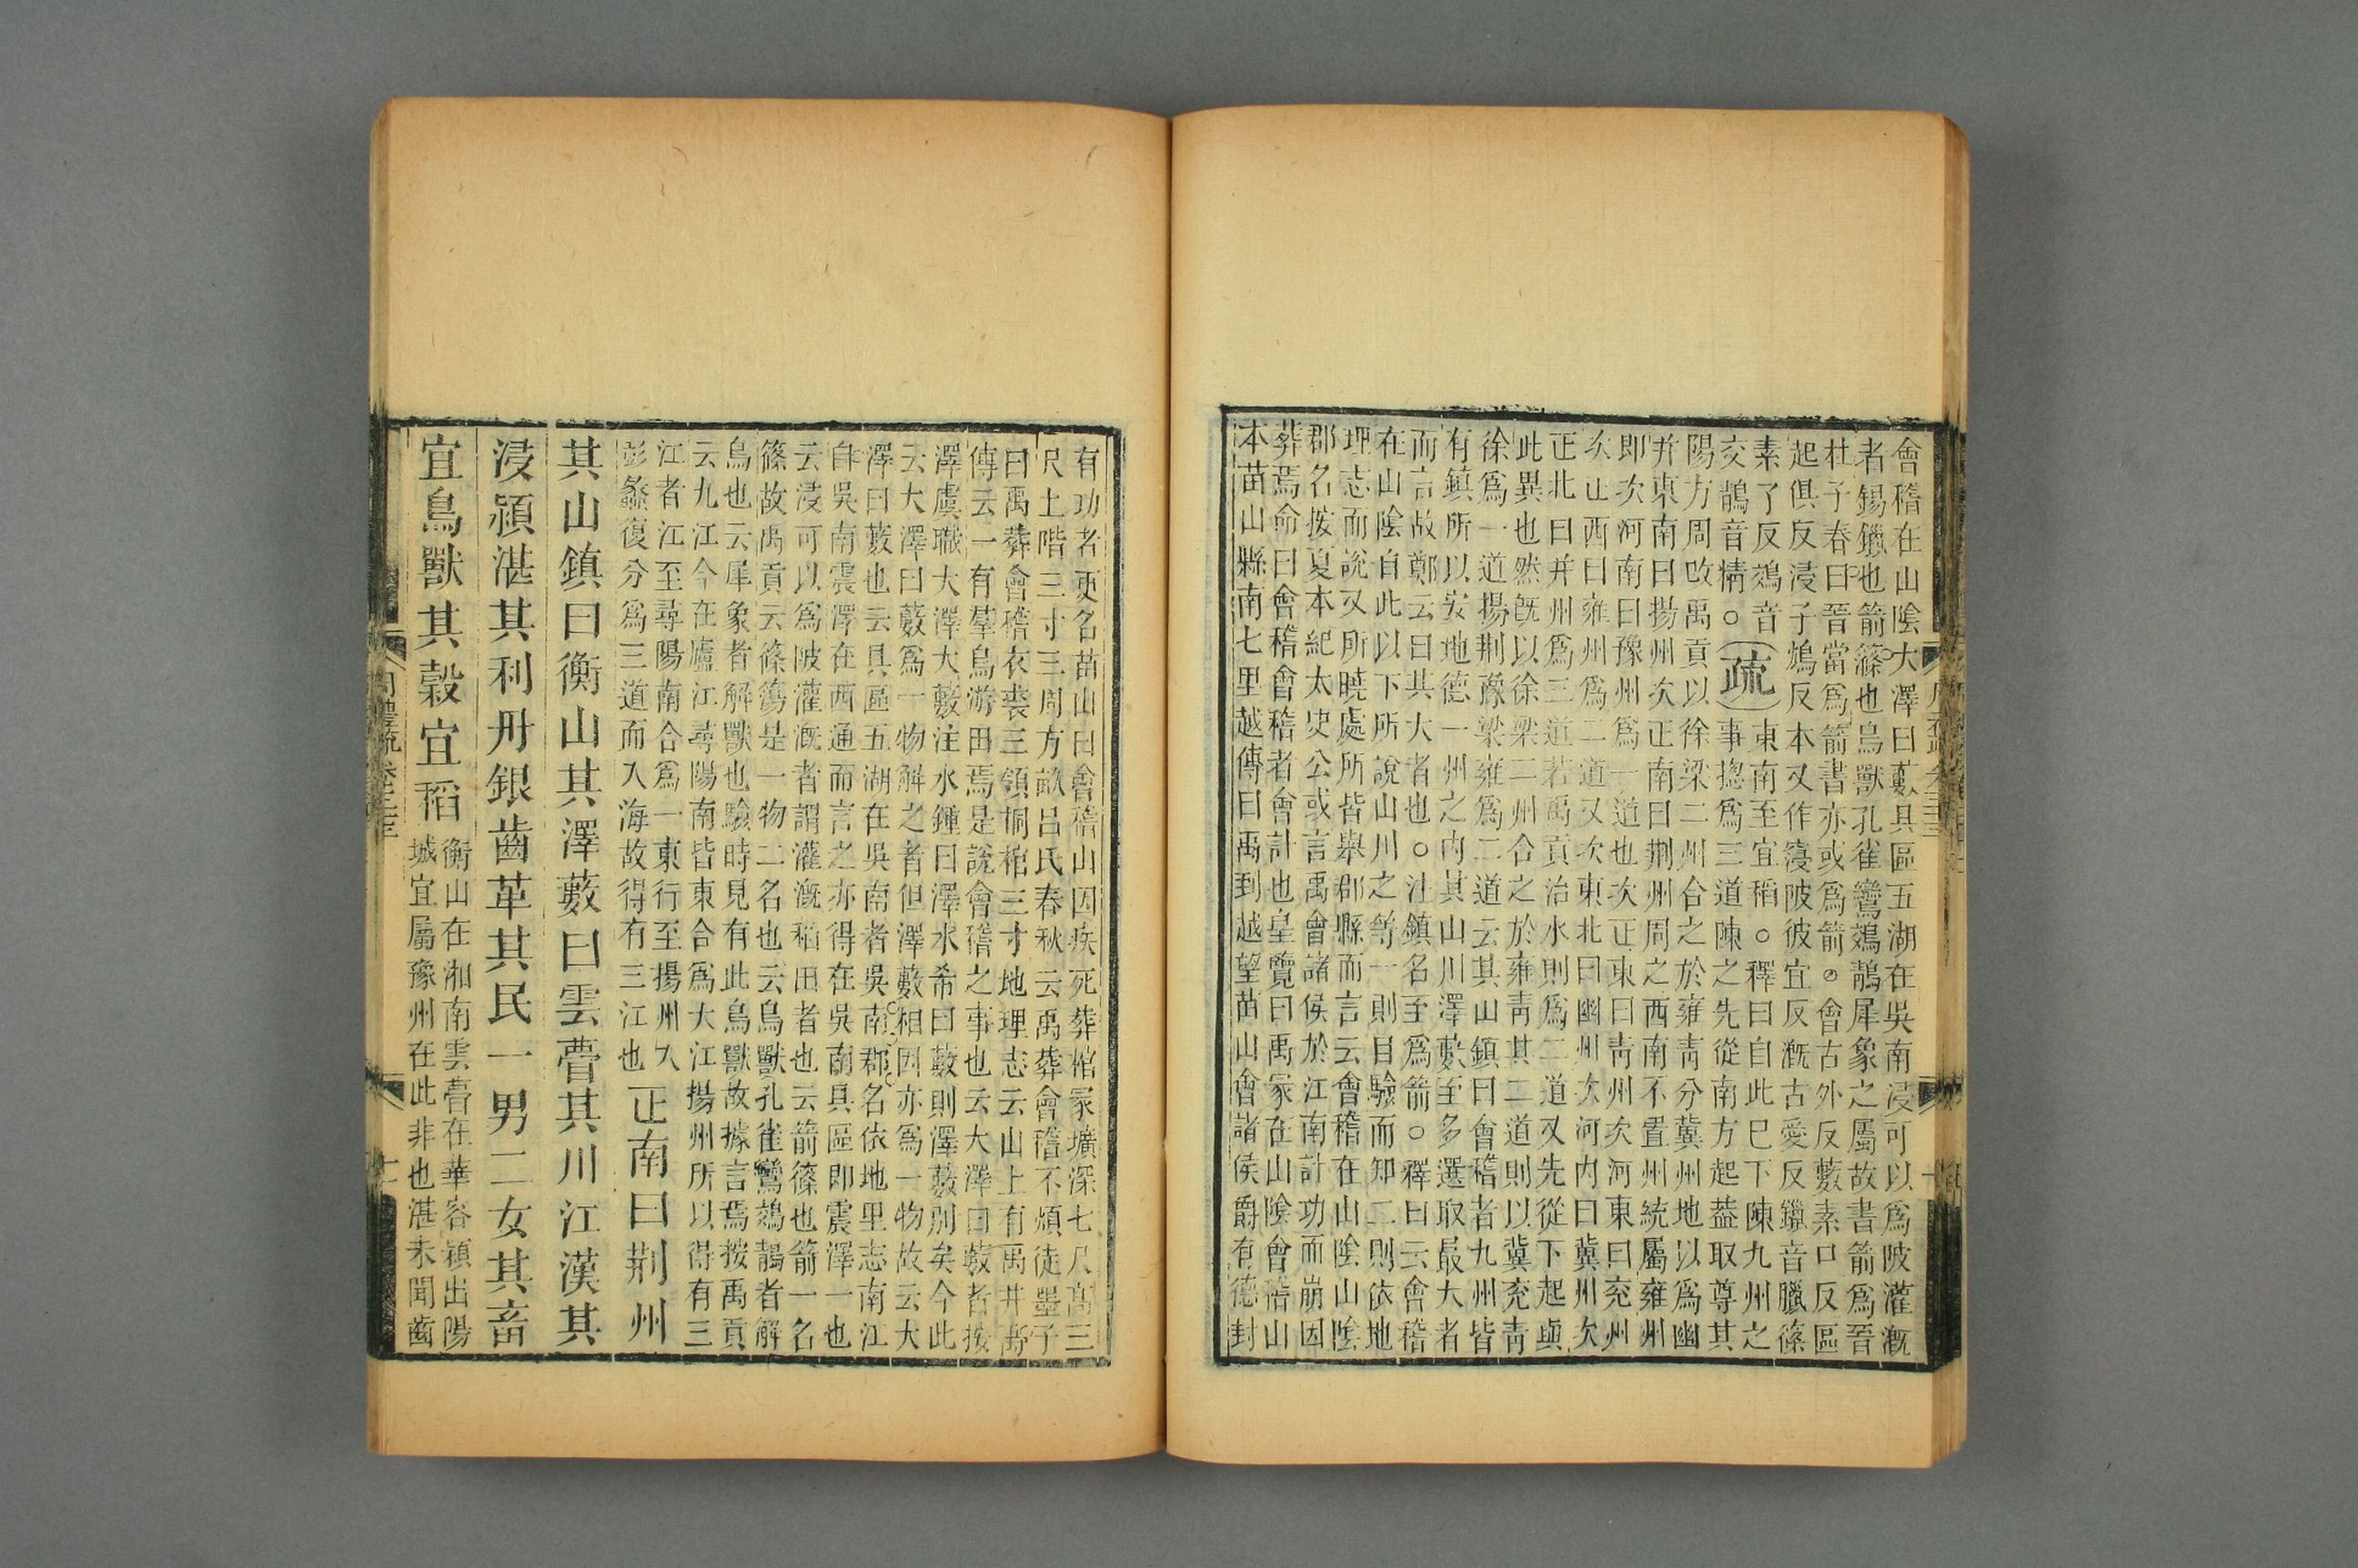 會稽在山陰大澤曰藪具區五湖在吳南浸可以爲陂灌漑
者錫鑞也箭篠也鳥獸孔雀鸞鵁鶄犀象之屬故書箭爲晉
杜子春曰晉當爲箭書亦或爲箭。會古外反藪素口反區
起俱反浸子鴆反本又作寖陂彼宜反漑古愛反鑞音臘篠
素了反鵁音
交鶄音精。
疏
東南至宜稻。釋曰自此已下陳九州之
事揔爲三道陳之先從南方起葢取尊其
陽方周改禹貢以徐梁二州合之於雍青分冀州地以爲幽
幷東南曰揚州次正南曰荆州周之西南不置州統屬雍州
即次河南曰豫州爲一道也次正東曰靑州次河東曰兖州
次正西曰雍州爲二道又次東北曰幽州次河內曰冀州次
正北曰并州爲三道若禹貢治水則爲二道又先從下起與
此異也然旣以徐梁二州合之於雍靑其二道則以冀兖靑
徐爲一道揚荆豫梁雍爲二道云其山鎮曰會稽者九州皆
有鎮所以安地德一州之內其山川澤藪至多選取最大者
而言故鄭云曰其大者也。注鎮名至爲箭。釋曰云會稽
在山陰自此以下所說山川之等一則目驗而知二則依地
理志而說又所曉處所皆舉郡縣而言云會稽在山陰山陰
郡名按夏本紀太史公或言禹會諸侯於江南計功而崩因
葬焉命曰會稽會稽者會計也皇覽曰禹冢在山陰會稽山
本苗山縣南七里越傳曰禹到越望苗山會諸侯爵有德封
有功者更名苗山曰會稽山因疾死葬棺冢壙深七尺高三
尺土階三寸三周方畝呂氏春秋云禹葬會稽不煩徒墨子
曰禹葬會稽衣裘三領桐棺三寸地理志云山上有禹井禹
傳云一有羣鳥游田焉是說會稽之事也云大澤曰藪者按
澤虞職大澤大藪注水鍾曰澤水希曰藪則澤藪別矣今此
云大澤曰藪爲一物解之者但澤藪相因亦爲一物故云大
澤曰藪也云具區五湖在吳南者吳南郡名依地里志南江
自吳南震澤在西通而言之亦得在吳南具區即震澤一也
云浸可以爲陂灌漑者謂灌漑稻田者也云箭篠也箭一名
篠故禹貢云篠簜是一物二名也云鳥獸孔雀鸞鵁鶄者解
鳥也云犀象者解獸也驗時見有此鳥獸故據言焉按禹貢
云九江今在廬江尋陽南皆東合爲大江揚州所以得有三
江者江至尋陽南合爲一東行至揚州入
彭蠡復分爲三道而入海故得有三江也
正南曰荆州
其山鎮曰衡山其澤藪曰雲瞢其川江漢其
浸潁湛其利丹銀齒革其民一男二女其畜
宜鳥獸其穀宜稻
衡山在湘南雲瞢在華容潁出陽
城宜屬豫州在此非也湛未聞齒
周禮疏卷三十三